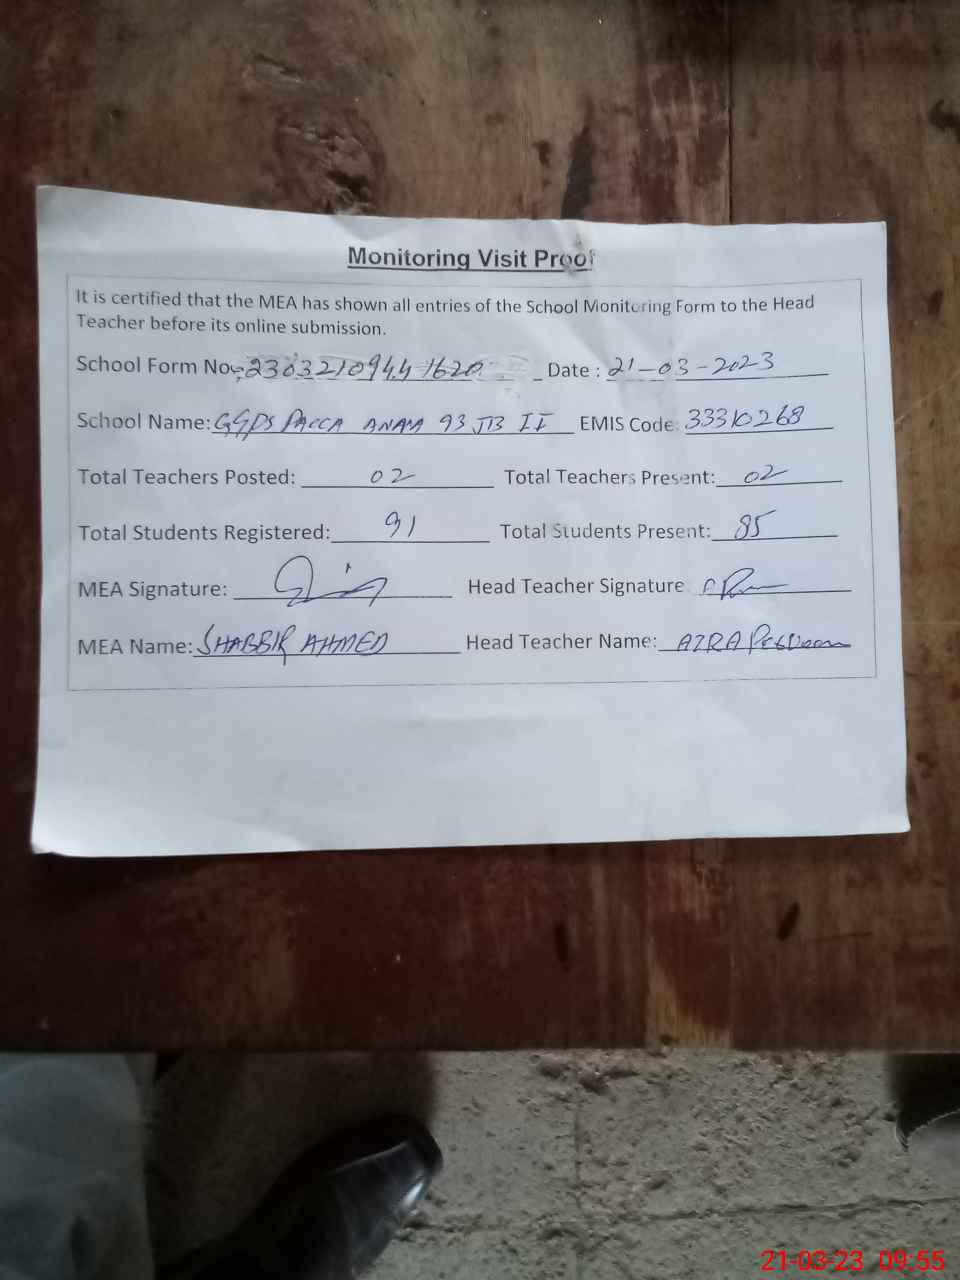 Monitoring Visit Proof
It is certified that the MEA has shown all entries of the School Monitoring Form to the Head
Teacher before its online submission.
School Form No: 2303210944-1620 Date : 21-03-2023
School Name: GGPS PACCA ANAA 93 JB II EMIS Code: 33310268
Total Teachers Posted: 02 Total Teachers Present: 02
Total Students Registered: 91 Total Students Present: 85
MEA Signature: Head Teacher Signature
MEA Name: SHABBIR AHMED Head Teacher Name: AZRA Perveen
21-03-23 09:55